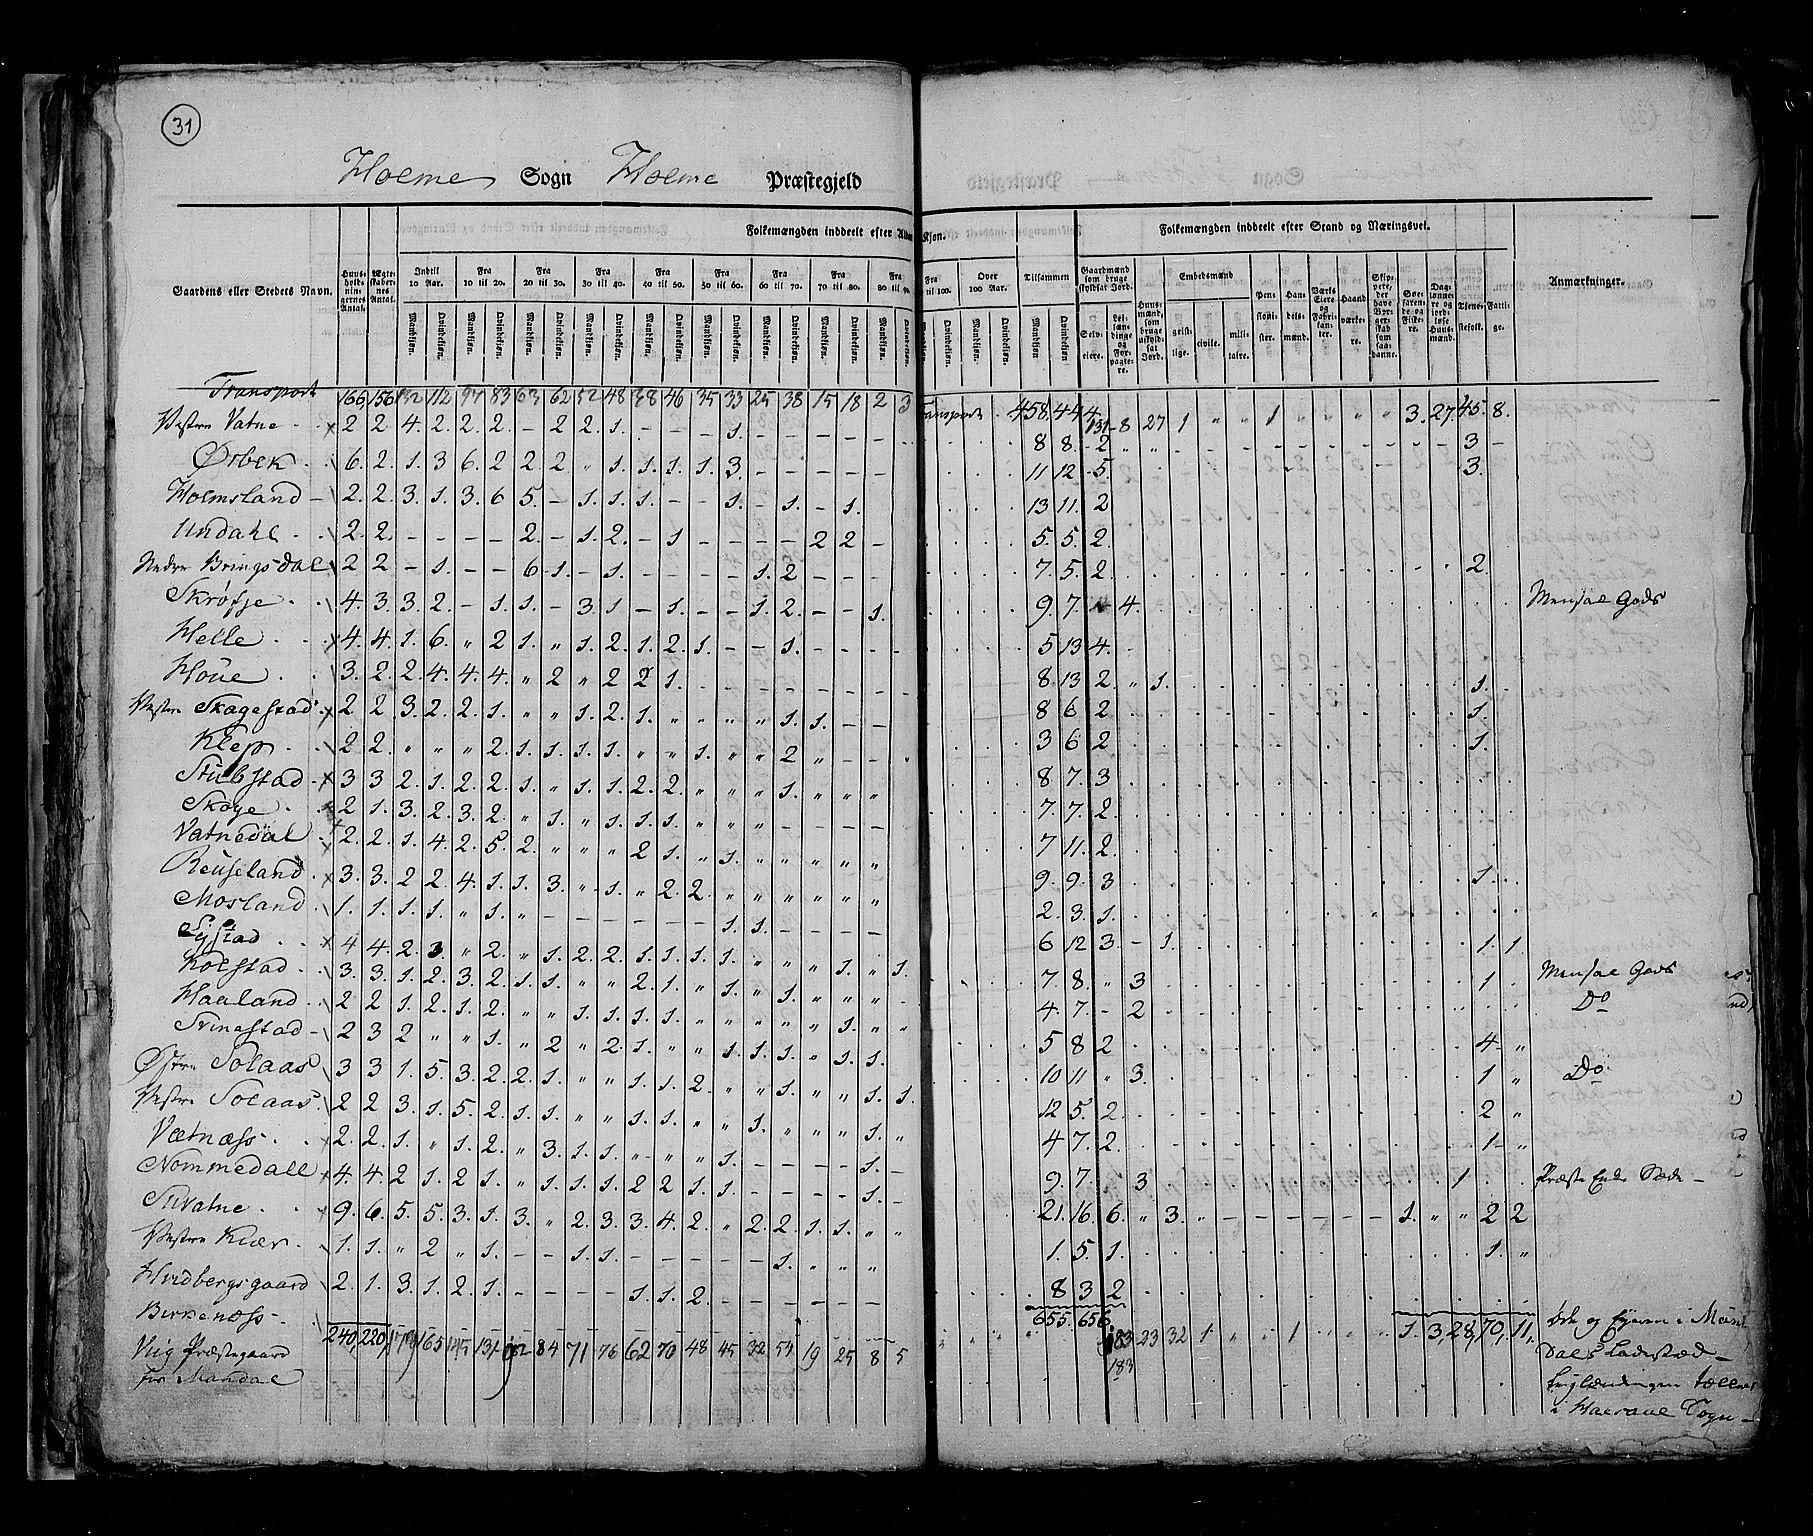 31
Holme Sogn Holme Præstegjeld
Præstegjeld Sogn
Folkemængden inddeelt efter Alder Kjøn. Folkemængden inddeelt efter Stand og Næringsvei.
Gaardens eller Stedets Navn. Huus-holdningernes Antal. Ægteskabernes Antal. Indtil 10 Aar. Fra 10 til 20. Fra 20 til 30. Fra 30 til 40. Fra 40 til 50. Fra 50 til 60. Fra 60 til 70. Fra 70 til 80. Fra 80 til 90. Fra til 100. Over 100 Aar. Tilsammen Gaardmænd som bruge skyldsat Jord. Huusmænd, som bruge uskyldsat Jord. Embedsmænd Pensionister. Handelsmænd. Værks Eiere og Fabrikanter. Haandværkere. Skippere, der have Borgerskab som saadanne. Søefarende og Fiskere. Daglønnere og jordløse Huusmænd. Tjenestefolk. Fattige. Anmærkninger.
Mandkjøn. Qvindekjøn. Selveiere. Leilændinge og Forpagtere. geistlige. civile. militaire.
Transport 166 156 132 112 97 83 63 62 52 48 38 46 35 33 25 38 15 18 2 3 Transport 458 444 131 8 27 1 " " 1 " " " " 3. 27 45. 8.
Vestre Vatne 2 2 4. 2. 2. 2. - 2 2. 1. - - - 1. 8 8. 2 3
Ørbek 6. 2. 1. 3 6. 2 2. 2 " 1. 1. 1. 1. 3. 11 12 5. 3.
Holmsland 2. 2 3. 1. 3. 6 5. - 1. 1. 1. - - 1. - 1. - 1. 13 11. 2
Undahl 2. 2. - - - - 2. - 1. 2. - 1 - - - - 2 2 - 5. 5. 2.
Nedre Bringsdal 2 2 - 1. - - 6 1. - 1. - - - - 1. 2 - - - 7. 5. 2. 2.
Skrøfje 4. 3. 3. 2. - 1. 1. - 3. 1. - 1. - - 1. 2. - - 1. 9. 7. 4. Mensal Gods
Helle 4. 4. 1. 6. " 2 1. " 1. 2. 1. 2. 1. - - 1. 5 13 4.
Höue 3. 2. 2. 4. 4. 4. " 2 " 2 2 1. 8. 13 2. " 1. 1.
Vestre Skagestad 2 2 3. 2. 2. 1. " " 1. 2. 1. " " " " 1. 1. - - 8 6 2 1.
Klep 2 2. " " " 2. 1. 1. 1. 1. " " 1. " " 2 " - - 3 6 2 1.
Stubstad 3 3 2. 1. 2. 2. 1. " 1. 1. 2. 2. " " " 1. " " " 8 7. 3
Skøye 2 1. 3. 2. 3. 2. " 1. " 1. 1. 1. " " " - - - - 7. 7. 2.
Vatnedal 2. 2. 1. 4. 2. 5. 2. " " " 2 1. " 1. " " " " " 7 11. 2.
Reuseland 3. 3. 2 2. 4. 1. 1. 3. " 1. " 2. 2. " " " " " " 9. 9. 3 1.
Mosland 1. 1. 1. 1. " 1. " - - - - - - 1. 1. - - - - 2. 3. 1.
Systad 4 4. 2. 3. " 2. " 1. 2. 2. 1. 1. 1. 1. " " " 1. " 1. 6 12 3. - 1. 1. 1
Kolstad 3. 3. 1. 2. 3. 2. 1. 1. " " 2. 1. " 1. " 1. " " " 7. 8. " 3. 1 Mensal Gods
Haaland 2 2 1. 2. 1. 2. " " 1. 1. 1. 1. " " " " " 1. " " 4. 7. - 2 Do
Trinestad 2 3 2 " " 1. " 2 " 2. 1. " " 1. 1. 1. " 1. 1. 5 8 2 4 "
Østre Solaas 3 3 1. 5. 3. 2. 2. 1. " " 1. 1. 2. " " 1. " " 1. 1. 10 11 " 3. 1 " Do
Vestre Solaas 2 2 3. 1. 5. 2. 1. 1. " " 1. 1. " " 1. " " " 1. " 12 5. 2. 2 "
Vatnæss 2. 2. 1. " 1. 2. " 3. 1. 1. " " " 1. - - - - 1. - 4 7. 2. 1 "
Nommedall 4. 4. 2 1. 2 1. " 1. 1. 1. 2 2 1. 1. - - - - 1. - 9. 7. " 3 1 Præste Enke Sæde
Suvatne 9. 6. 5. 5. 3. 1. 3. " 2. 3. 3. 4. 2. " 2. 2. 1. 1. " " 21. 16. 6. " 3. " 1. " " 2 2
Vestre Kiær 1. 1. " 2 " 1. - - 1. 1. - - - - - 1. " " " 1. 5. 1. 1. "
Hvidbergsgaard 2. 1. 3. 1. 2. 1. - - - - 1. 1. 2. - - - - - - 8 3 2
Birkenæss 655. 656. Øde og Eyeren i Mandals Ladestæd
240, 220, 179 165 145 131 92 84 71 76 62 70 48 45 32 54 19 25 8 5 183 23 32 1 " " 1 " " " 1. 3, 28, 70, 11,
Vüg Præstegaard 183
for Mandal
i Halsaae Sogn